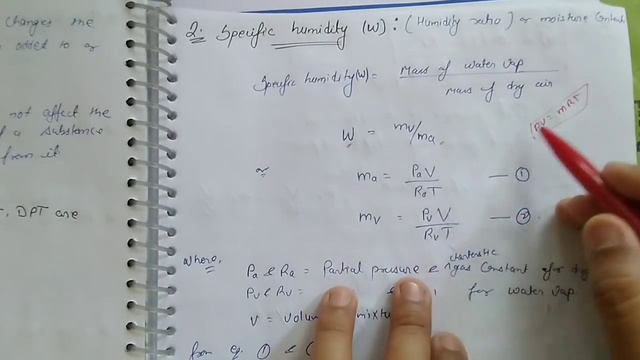 changes the
added to or
not affect the
of a substance
from it
DPT are
2. Specific humidity (W) : (Humidity ratio) or moisture Content
Specific humidity (W) = Mass of Water Vap / Mass of dry air
PV = mRT
W = mv/ma
or
ma = PaV / RaT — ①
mv = PvV / RvT — ②
where,
Pa & Ra = Partial pressure & gas Constant for dry
Pv & Rv = for water vap
V = Volum mixtu
from eq. ① &